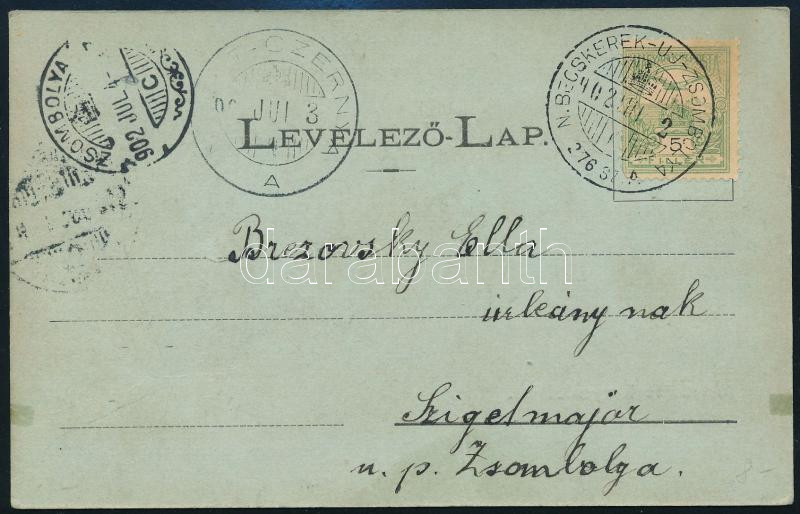 ZSOMBOLYA
902 JUL 4
C
CZERN
JUL 3
A
N.BECSKEREK-UJ-ZSOMBOLYA
902 JUL 2
276 SZ. A
5
FILLÉR
LEVELEZŐ-LAP.
Brezovsky Ella
úrleány nak
Szigetmajor
u. p. Zsombolya.
darabanth